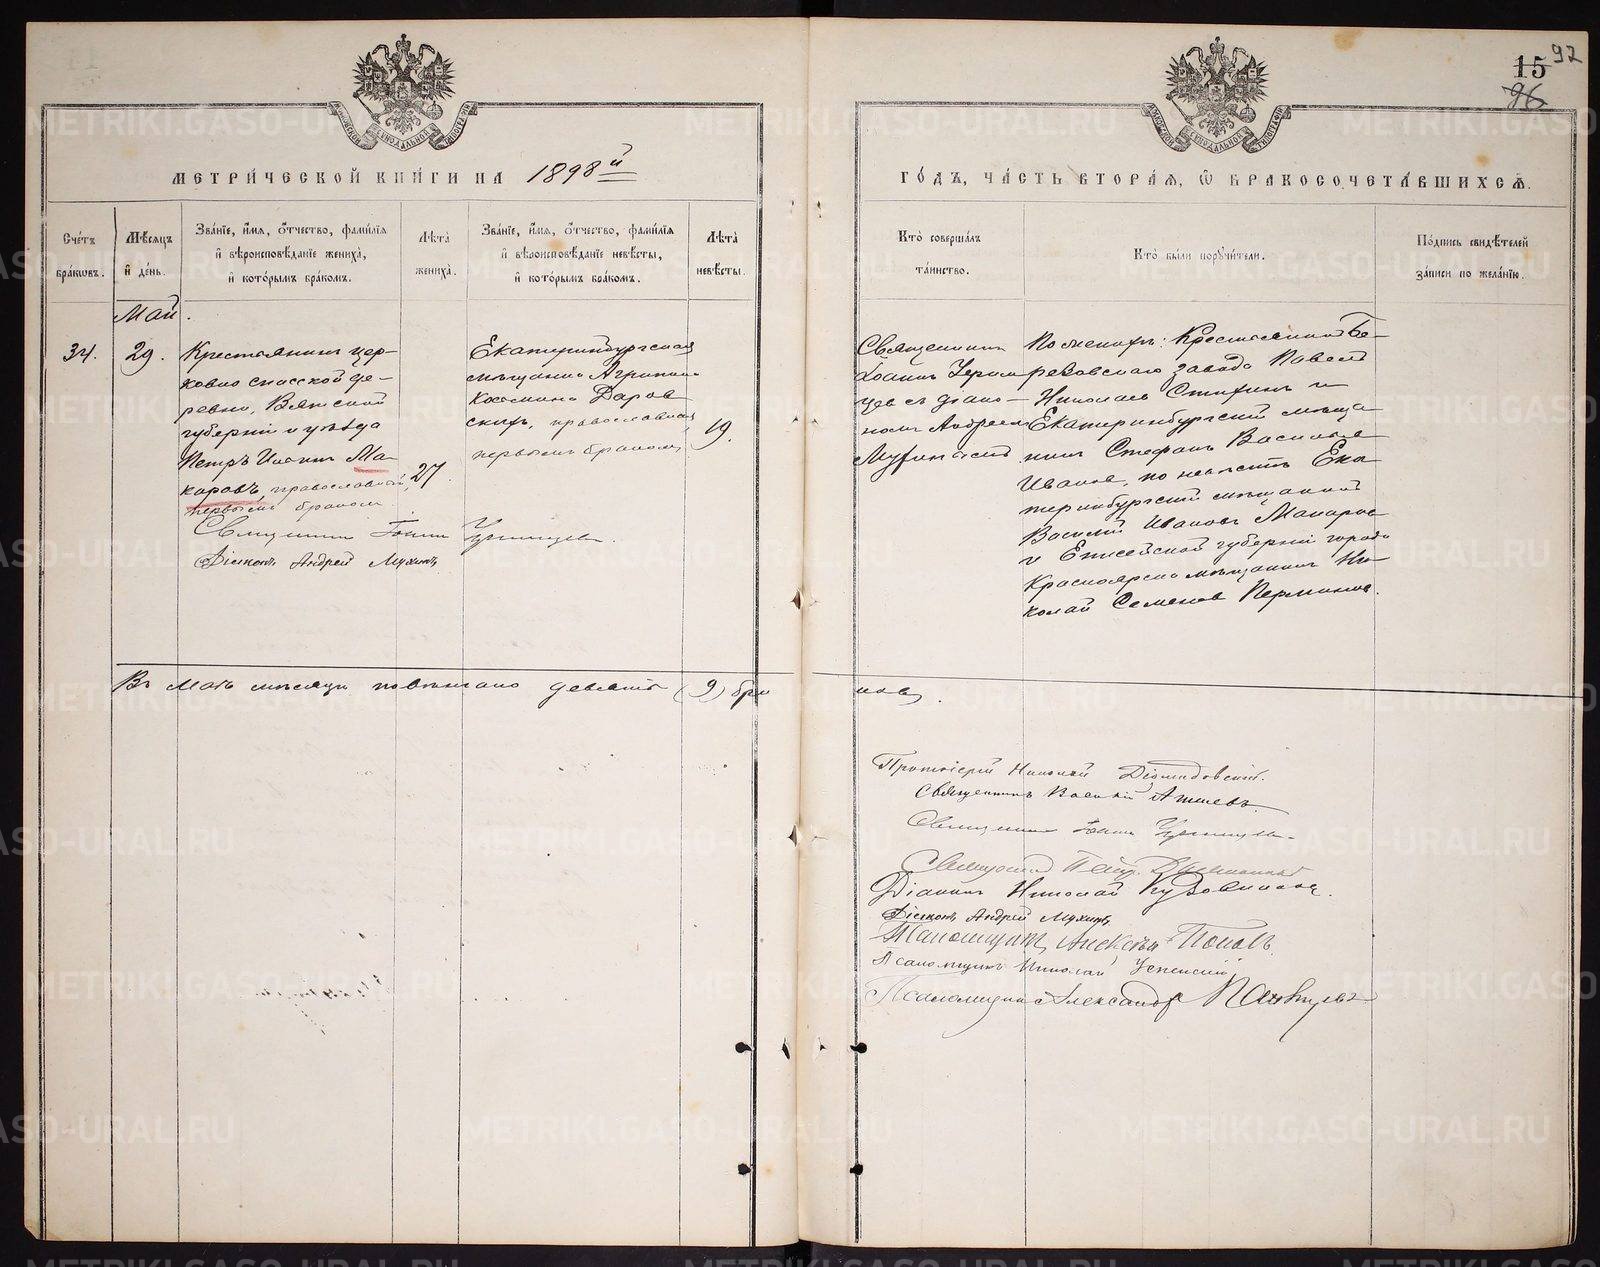 97
15
96
МЕТРИЧЕСКОЙ КНИГИ НА 1898й
ГОДЪ, ЧАСТЬ ВТОРАЯ, Ѡ БРАКОСОЧЕТАВШИХСЯ.
Счетъ браковъ.
Мѣсяцъ и день.
Званіе, имя, отчество, фамилія и вѣроисповѣданіе жениха, и которымъ бракомъ.
Лѣта жениха.
Званіе, имя, отчество, фамилія и вѣроисповѣданіе невѣсты, и которымъ бракомъ.
Лѣта невѣсты.
Кто совершалъ таинство.
Кто были поручители.
Подпись свидѣтелей записи по желанію.
Май.
34.
29.
Крестьянинъ
спасской де-
ревни, Вятской
губерніи и уѣзда
Петръ Ма-
каровъ, православный,
первымъ бракомъ
27.
Екатеринбургская
мѣщанка
православная
первымъ бракомъ
19.
Священникъ
Іоаннъ
цевъ съ діако-
номъ Андреемъ
Мухинымъ
По женихѣ: Крестьянинъ Бе-
резовскаго завода Павелъ
Николаевъ и
Екатеринбургскій мѣща-
нинъ Стефанъ Васильевъ
Ивановъ, по невѣстѣ Ека-
теринбургскій мѣщанинъ
Василій Ивановъ Макаровъ
и Енисейской губерніи города
Красноярска мѣщанинъ Ни-
колай Семеновъ
Священникъ Іоаннъ
Діаконъ Андрей Мухинъ
Въ Маѣ мѣсяцѣ повѣнчано девять (9) бра
ковъ.
Протоіерей Николай Діомидовскій.
Священникъ Василій
Священникъ Іоаннъ
Священникъ Петръ
Діаконъ Николай
Діаконъ Андрей Мухинъ
Псаломщикъ Алексѣй Поповъ
Псаломщикъ Николай Успенскій
Псаломщикъ Александръ
METRIKI.GASO-URAL.RU